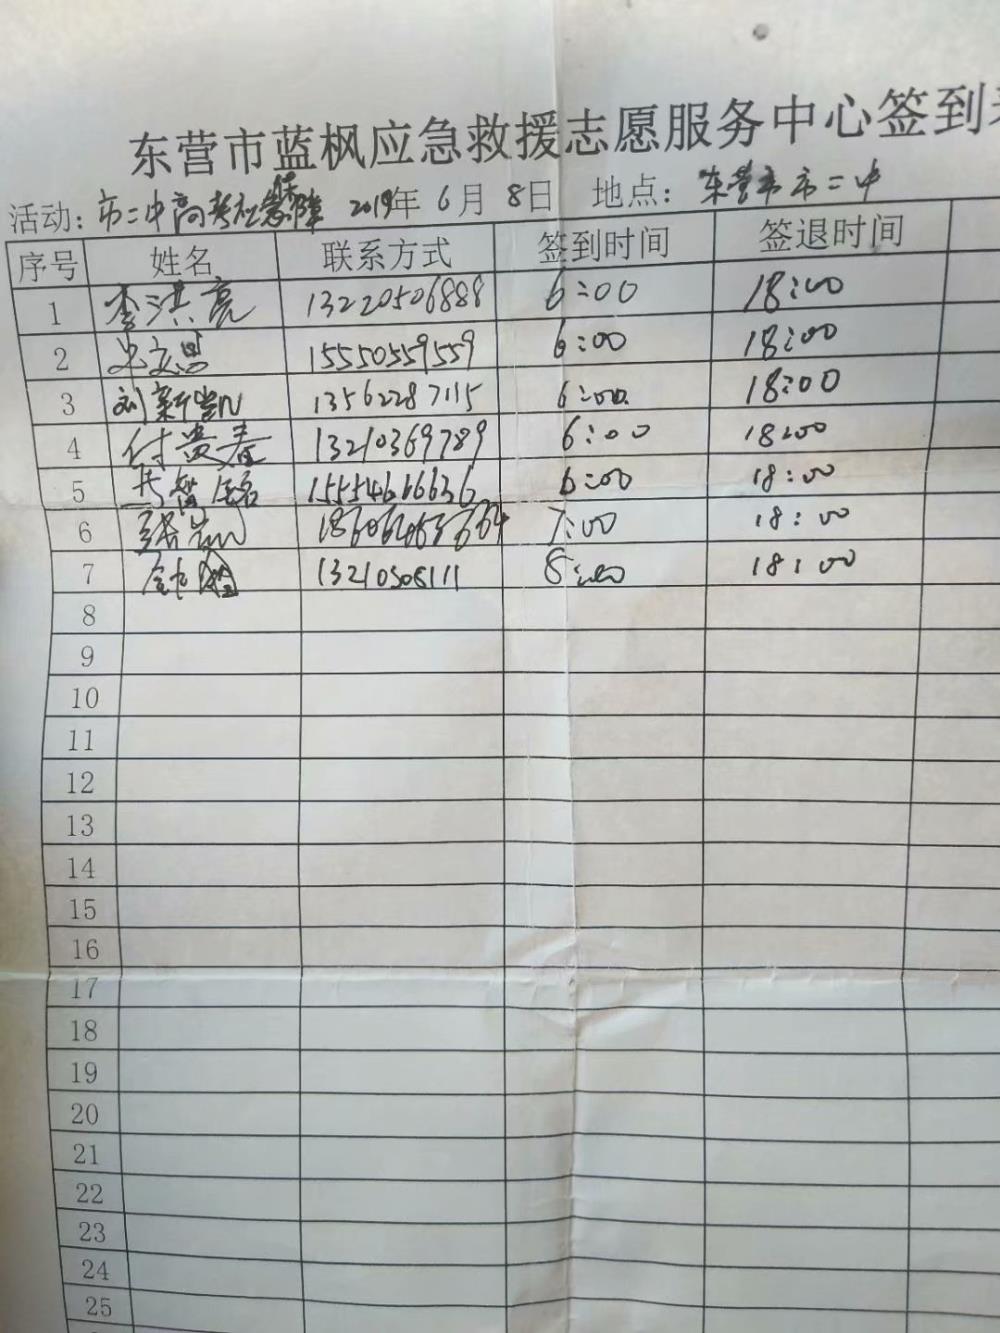 东营市蓝枫应急救援志愿服务中心签到
活动: 市二中高考应急保障 2019年 6月 8日 地点: 东营市市二中
序号 姓名 联系方式 签到时间 签退时间
1 李洪亮 13220506888 6:00 18:00
2 15550559559 6:00 18:00
3 刘新 13562287115 6:00 18:00
4 付贵春 13210369789 6:00 18:00
5 15554616636 6:00 18:00
6 张岩 7:00 18:00
7 13210508111 8:00 18:00
8
9
10
11
12
13
14
15
16
17
18
19
20
21
22
23
24
25